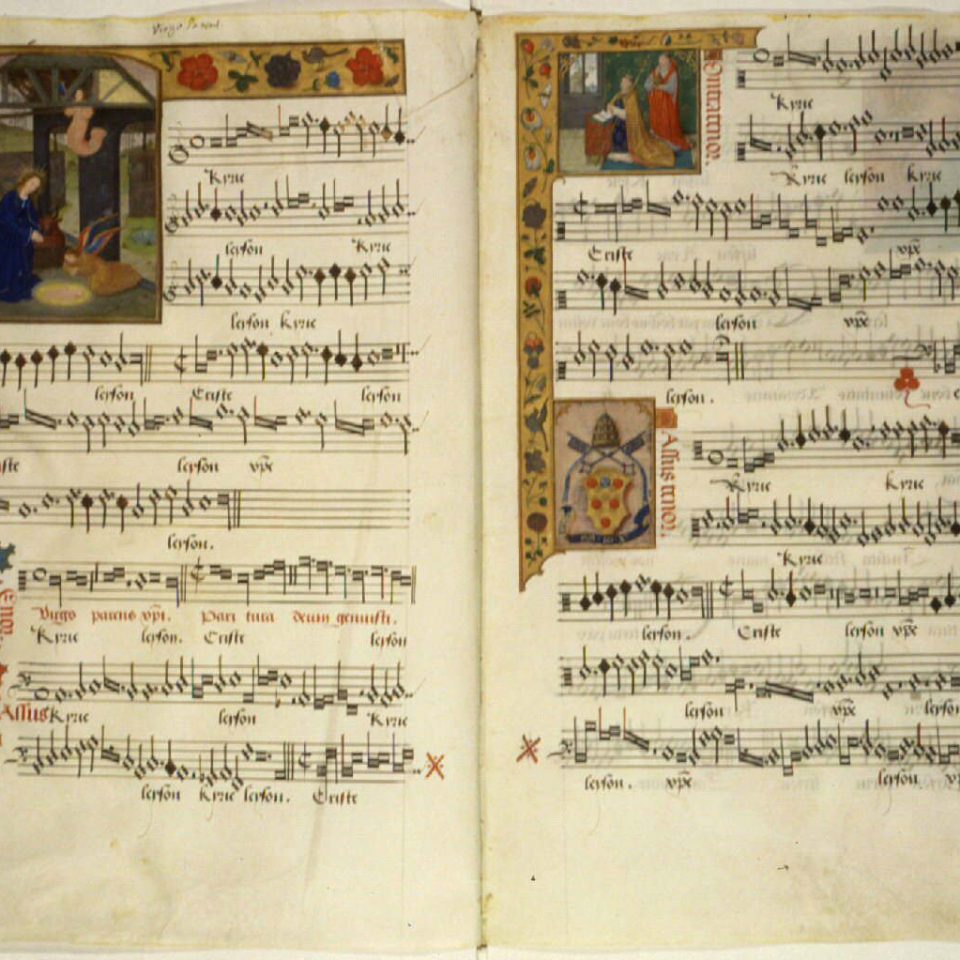 Kyrie
leyson Kyrie
leyson kyrie
leyson Criste leyson
ste leyson xpe
leyson.
Tenor.
Virgo parens xpi. Pari tura deum genuisti.
Kyrie leyson. Criste leyson
Assus Kyrie leyson Kyrie
leyson kyrie leyson. Criste
Contratenor.
Kyrie
Kyrie leyson kyrie
Criste xpe
leyson xpe
leyson.
Bassus tenor.
Kyrie Kyrie
Kyrie
leyson. Criste leyson xpe
leyson xpe leyson
leyson. xpe leyson